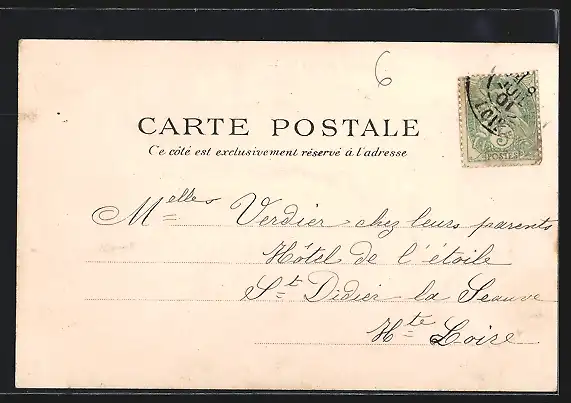 6
CARTE POSTALE
Ce côté est exclusivement réservé à l'adresse
POSTES
Melles Verdier chez leurs parents
Hôtel de l'étoile
St Didier la Seauve
Hte Loire